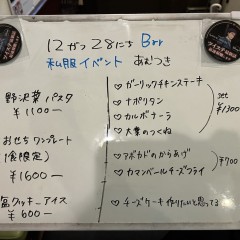 12がつ28にち Bar
私服イベント あむつき
野沢菜パスタ
¥1100ー
おせちワンプレート
(食限定)
¥1600ー
盆クッキーアイス
¥600ー
♡ガーリックチキンステーキ
♡ナポリタン
♡カルボナーラ
♡大葉のつくね
set
¥1300
♡アボカドのからあげ
♡カマンベールチーズフライ
¥700
♡チーズケーキ 作りたいと思ってる